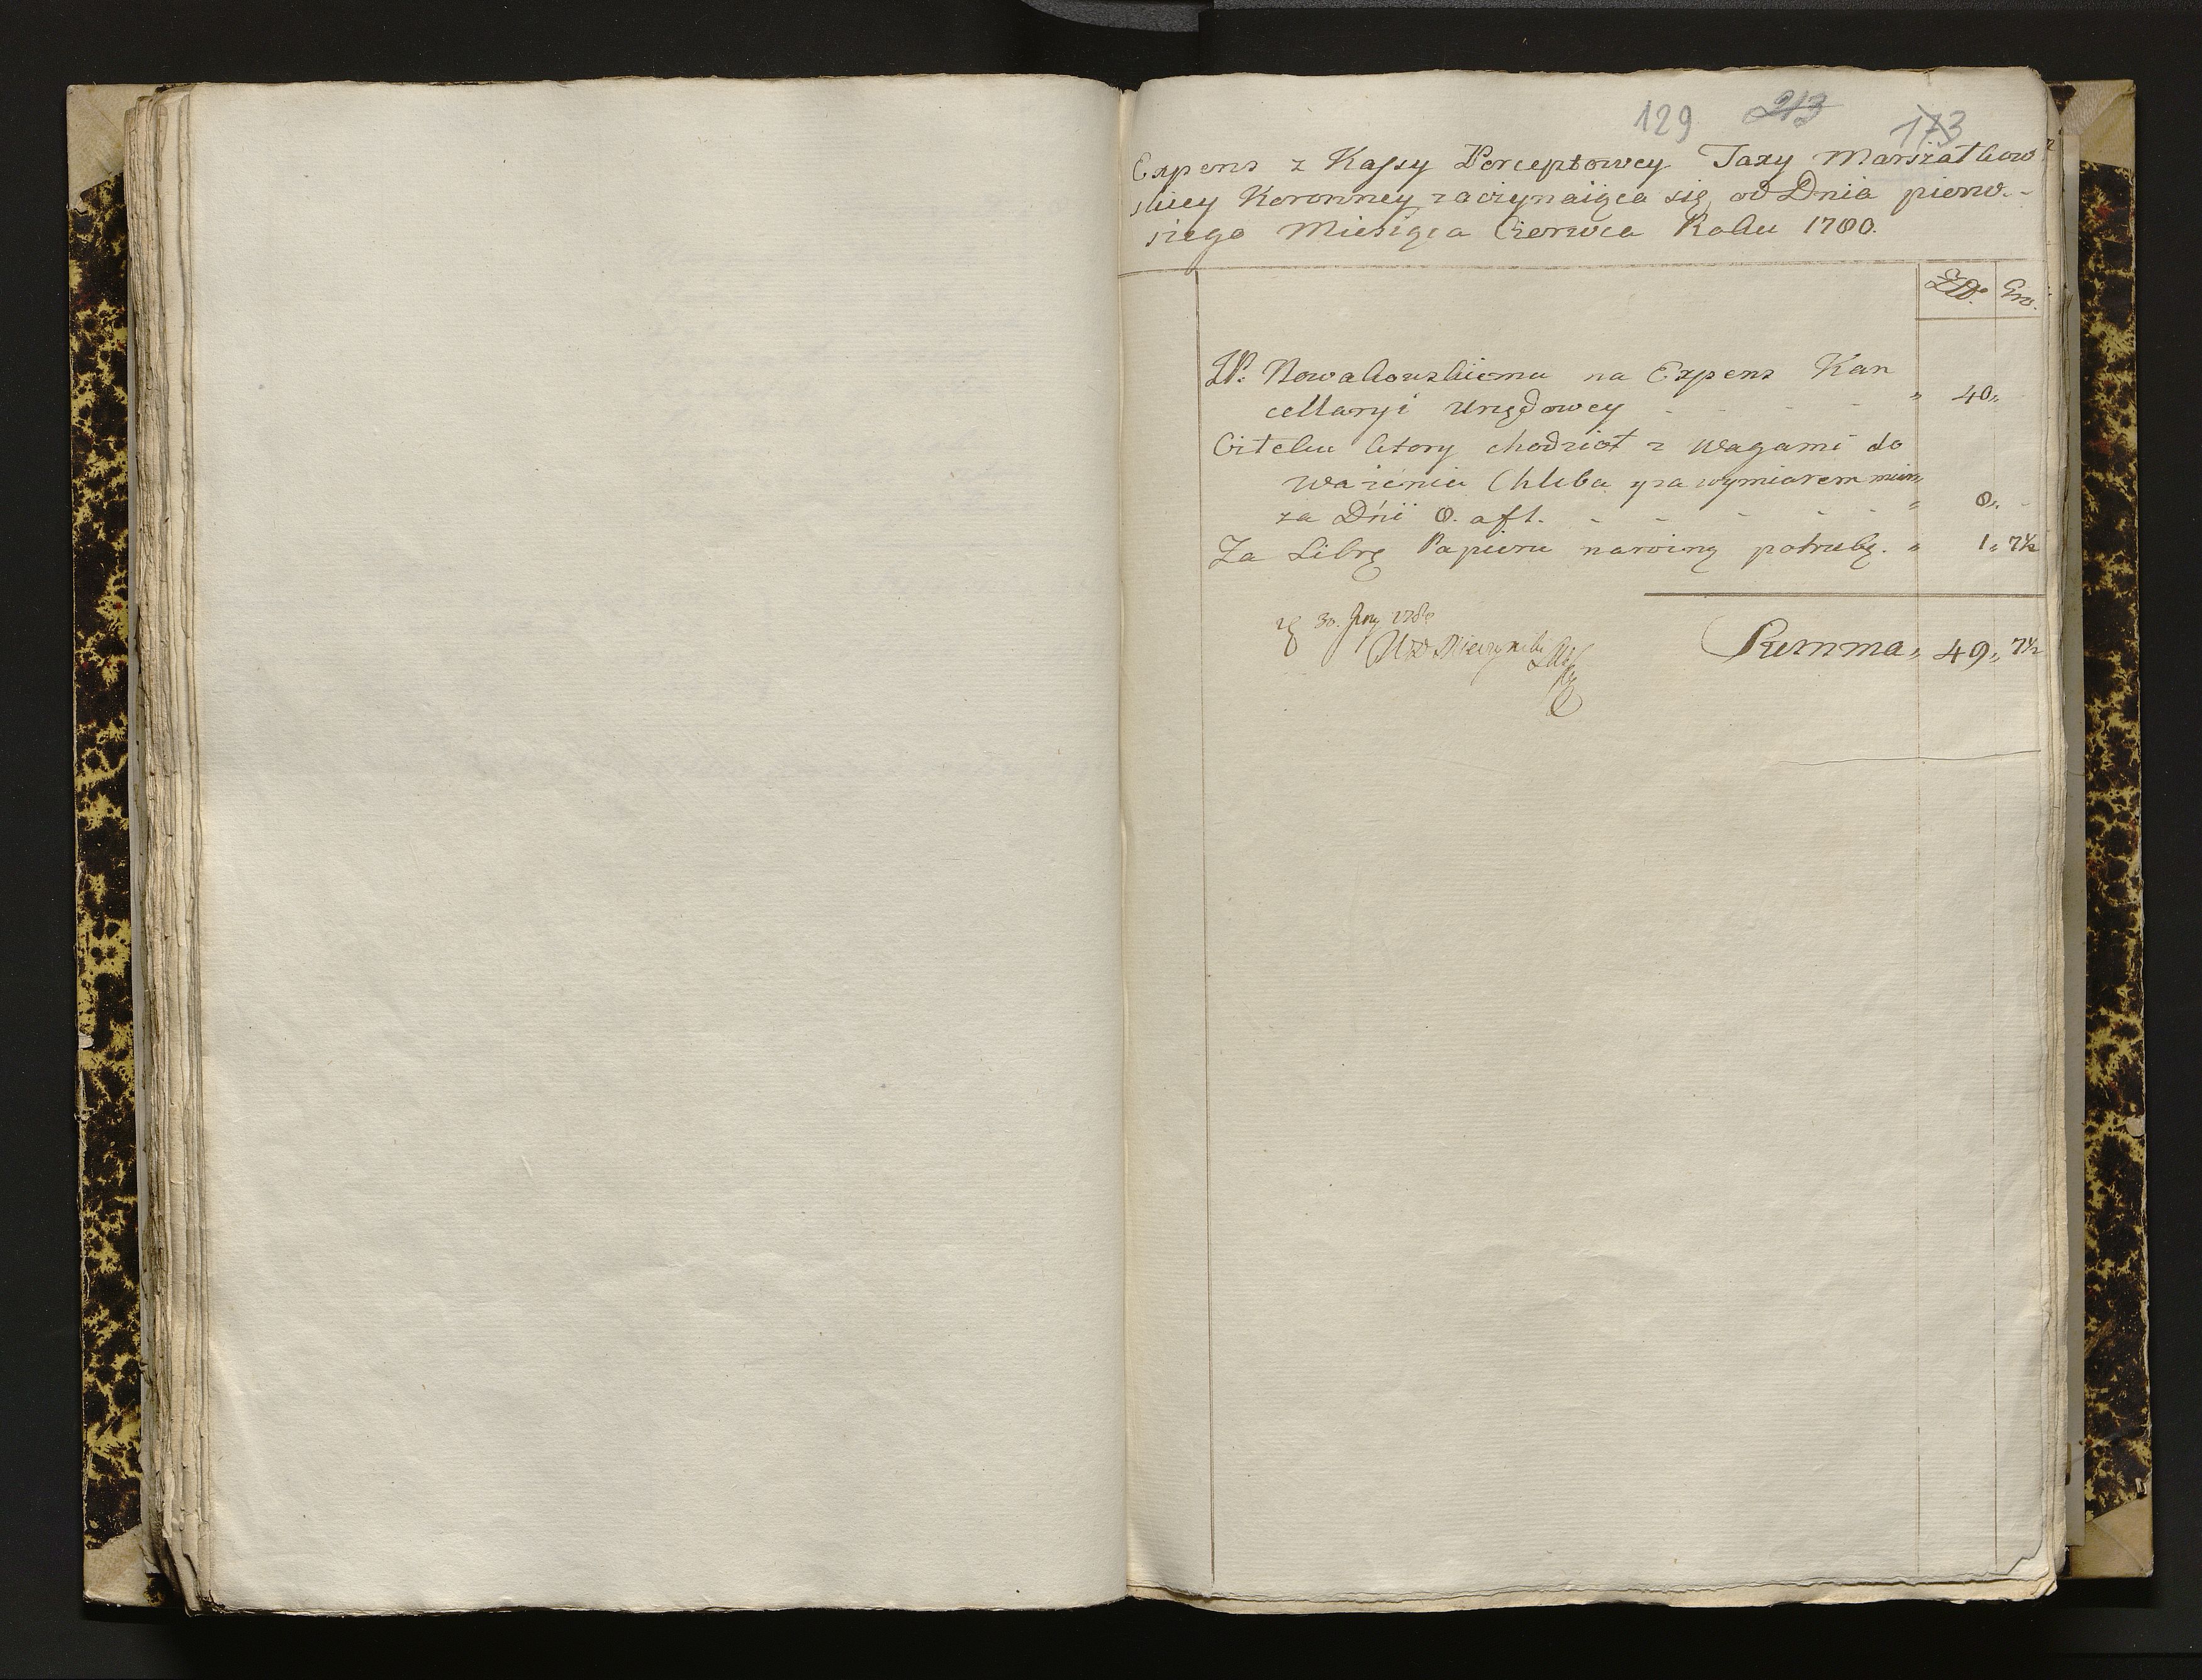 129 213 173
Expens z Kassy Perceptowey Taxy Marszałkow
skiey Koronney zaczynaiąca się od Dnia pierw-
szego Miesiąca Czerwca Roku 1780.
Złł. Gro.
JP. Nowakowskiemu na Expens Kan
cellaryi Urzędowey - - - - „ 40„
który chodził z Wagami do
ważenia Chleba y za wymiarem
za Dni 8. aft. - - - - - „ 8„ -
Za Librę Papieru na winą potrzebę. „ 1„ 7½
30. 1780
Summa„ 49„ 7½